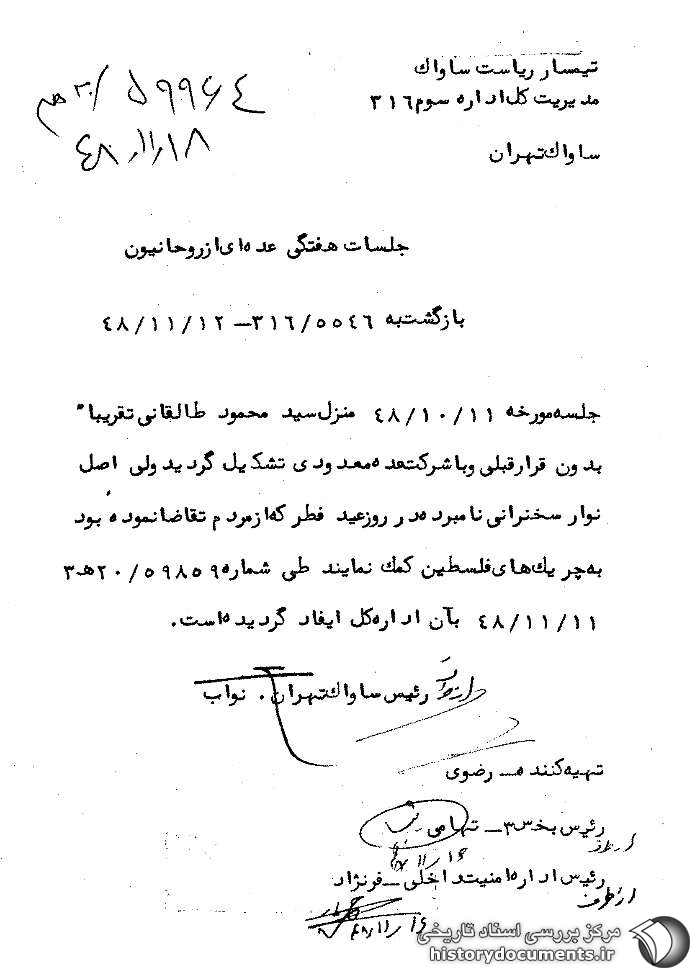 تیمسار ریاست ساواك
مدیریت کل اداره سوم ۳۱۶
۵۹۹۶۴ / ۲۰ هـ ۳
۴۸/۱۱/۱۸
ساواك تهران
جلسات هفتگی عده ای از روحانیون
بازگشت به ۳۱۶/۵۵۴۶ – ۴۸/۱۱/۱۲
جلسه مورخه ۴۸/۱۰/۱۱ منزل سید محمود طالقانی تقریبا"
بدون قرار قبلی و با شرکت عده معدودی تشکیل گردید ولی اصل
نوار سخنرانی نامبرده در روز عید فطر که از مردم تقاضا نموده بود
به چریك های فلسطین کمك نمایند طی شماره ۲۰/۵۹۸۵۹ هـ ۳
۴۸/۱۱/۱۱ بآن اداره کل ایفاد گردیده است.
رئیس ساواك تهران . نواب
تهیه کننده – رضوی
رئیس بخش ۳ – تهامی
از طرف
۱۶/۱۱
رئیس اداره امنیت داخلی – فرنژاد
از طرف
۴۸/۱۱/۱۶
مرکز بررسی اسناد تاریخی
historydocuments.ir